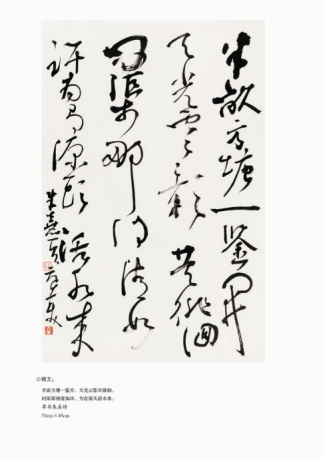 半亩方塘一鉴开
天光云影共徘徊
问渠那得清如许
为有源头活水来
朱熹
◎释文：
半亩方塘一鉴开，天光云影共徘徊。
问渠那得清如许，为有源头活水来。
草书朱熹诗
70cm×45cm